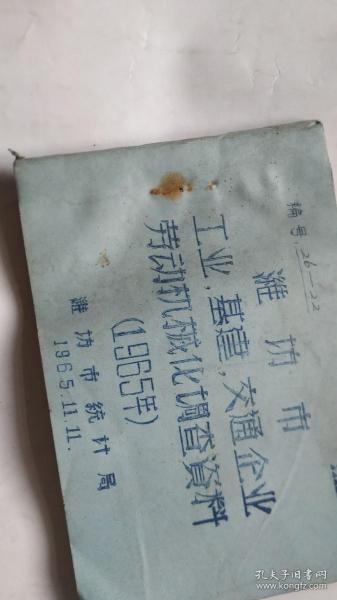 编号:26-22
潍坊市
工业、基建,交通企业
劳动机械化调查資料
(1965年)
潍坊市統计局
1965.11.11.
孔夫子旧书网
www.kongfz.com